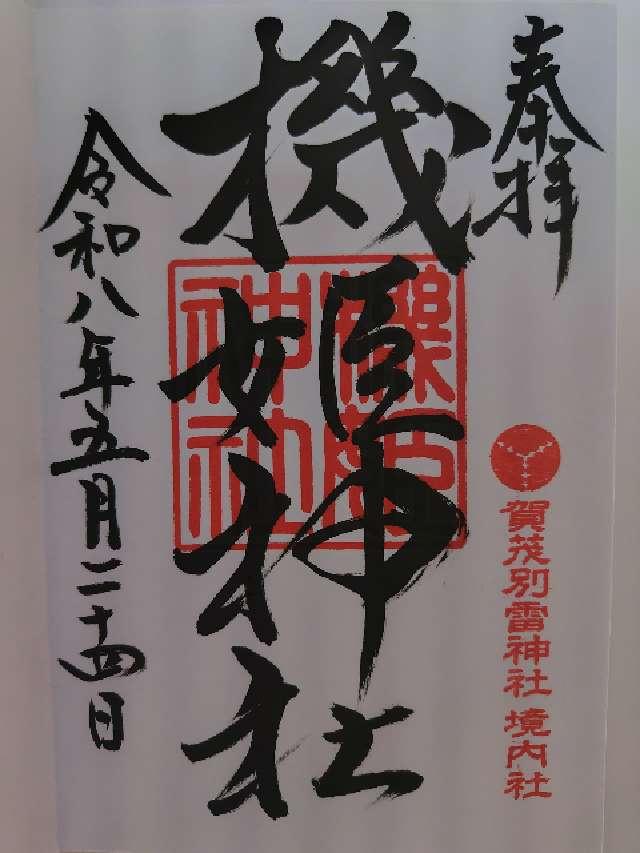 奉拝
賀茂別雷神社 境内社
機姫神社
機姫神社
令和八年五月二十四日